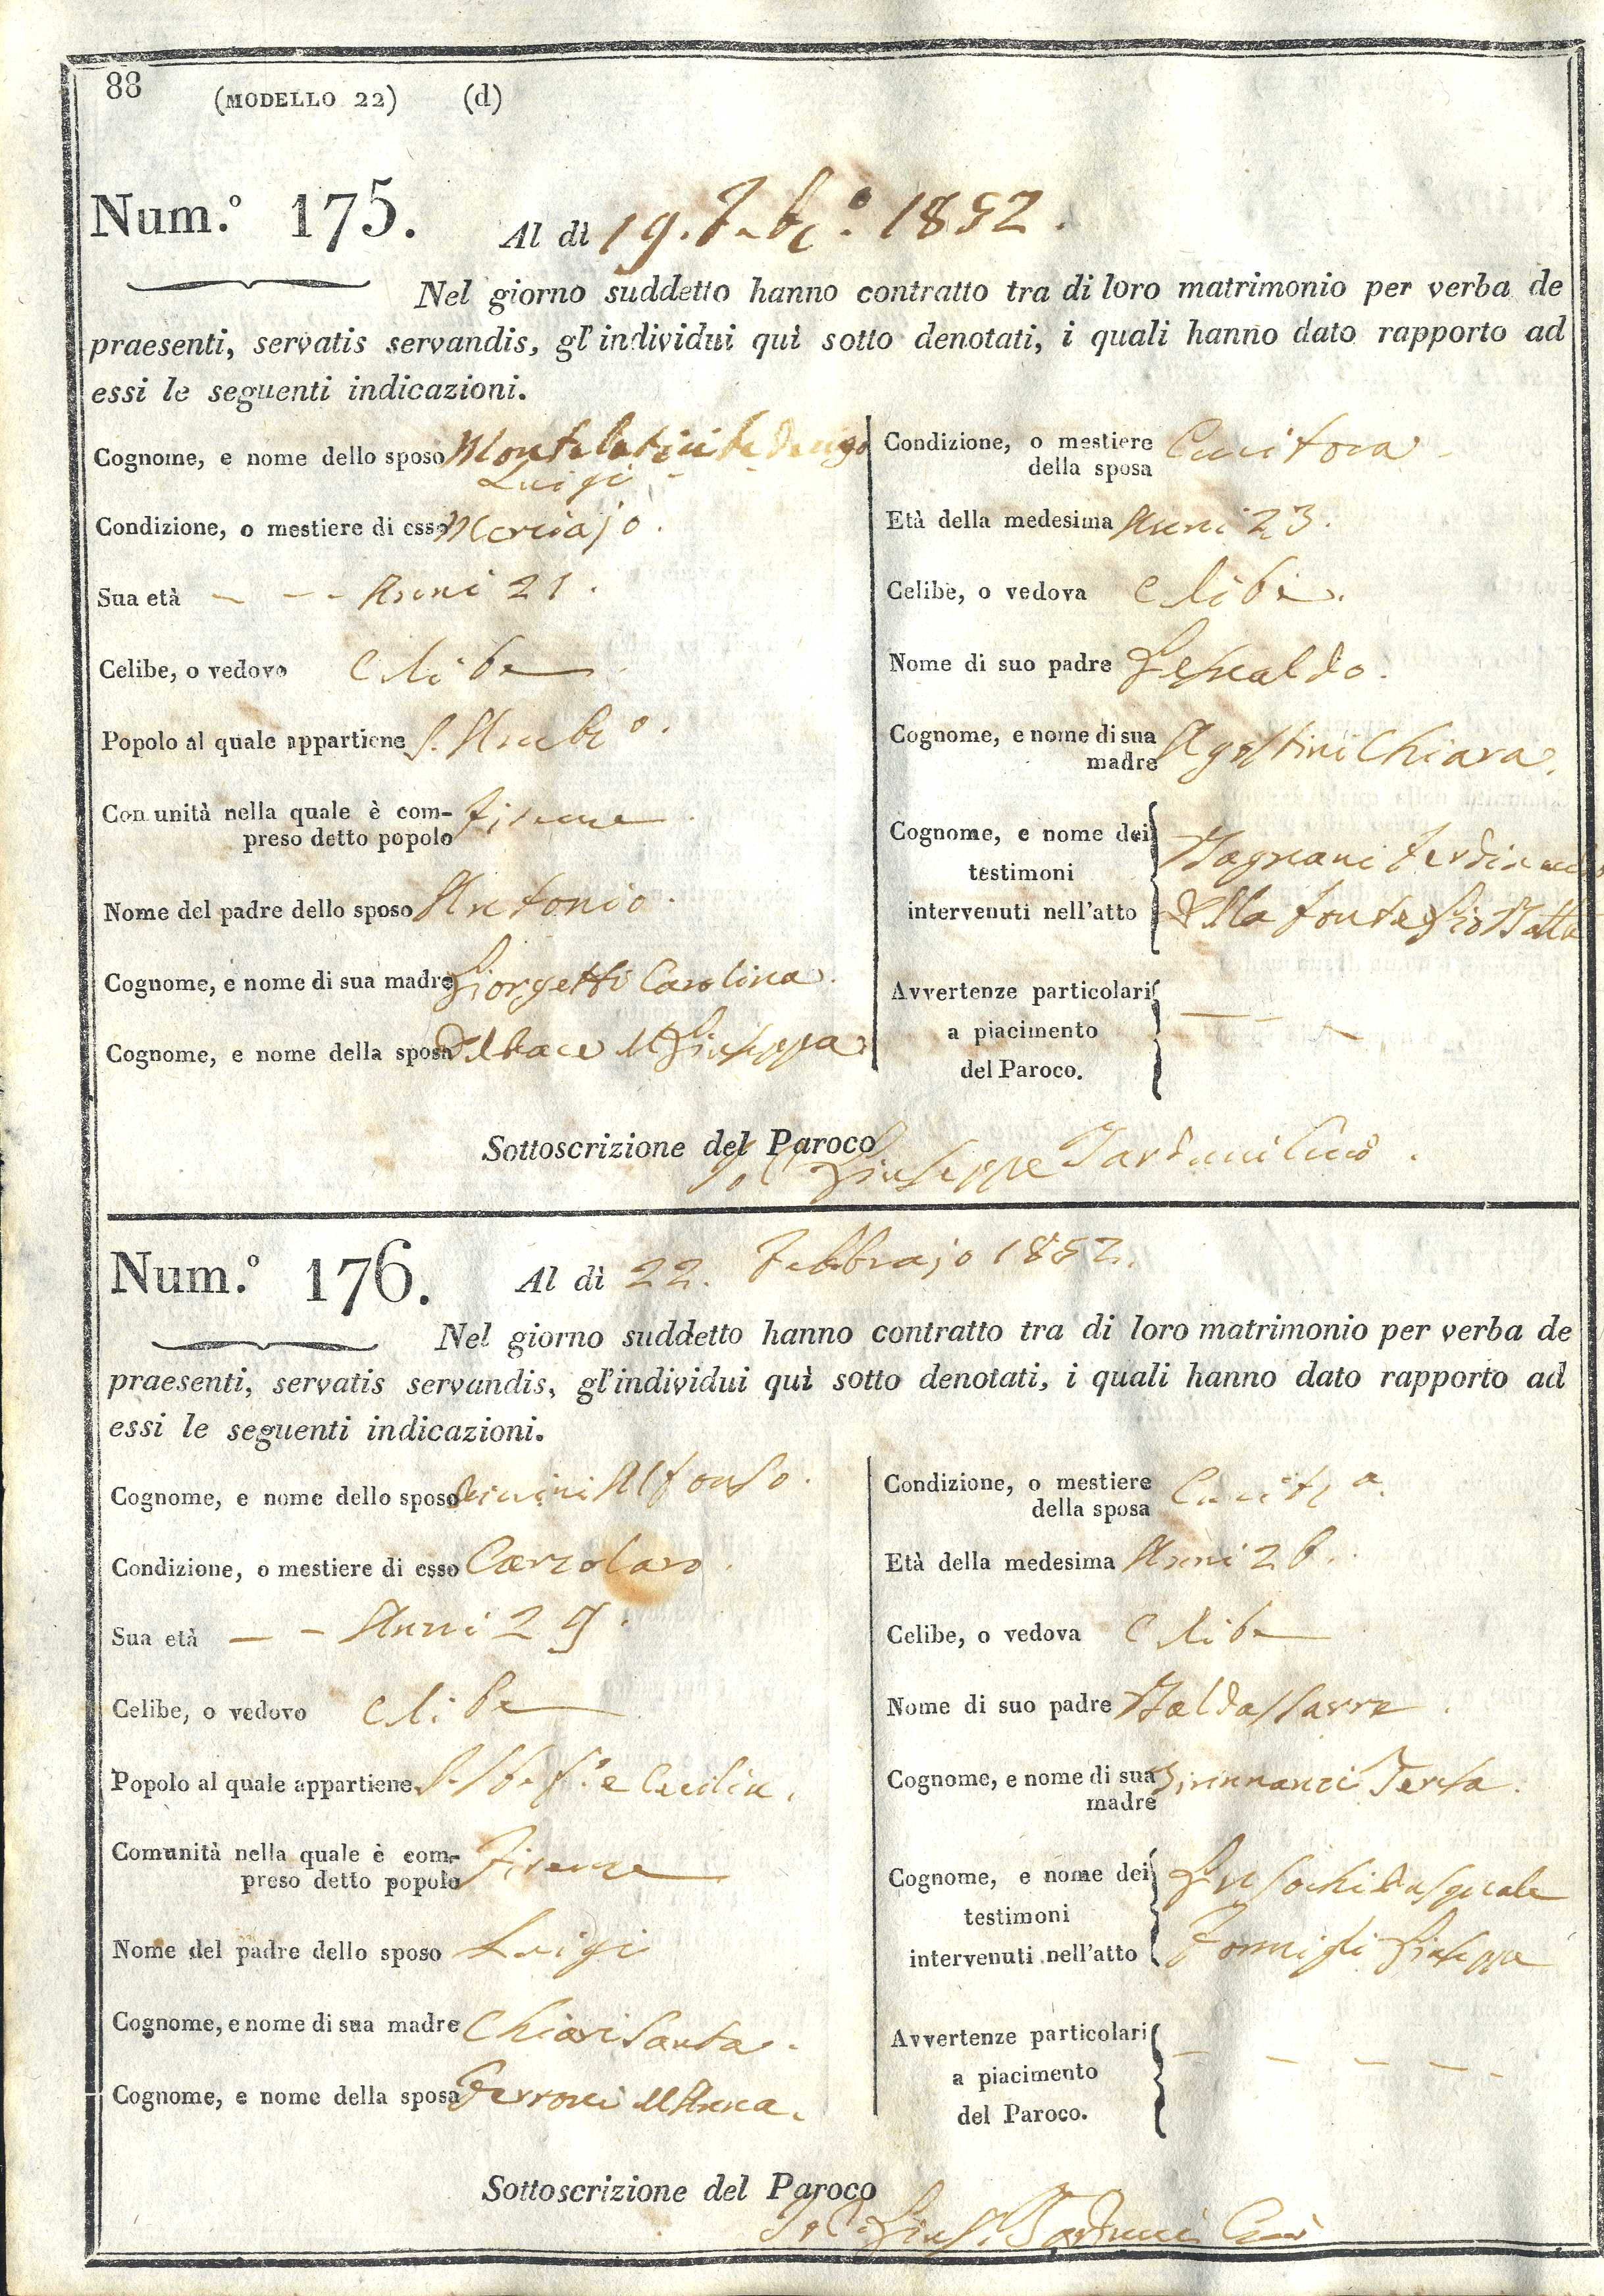 88
(MODELLO 22) (d)
Num.º 175.
Al dì 19. Febº. 1852.
Nel giorno suddetto hanno contratto tra di loro matrimonio per verba de
praesenti, servatis servandis, gl'individui quì sotto denotati, i quali hanno dato rapporto ad
essi le seguenti indicazioni.
Cognome, e nome dello sposo Montelatici
Luigi
Condizione, o mestiere di esso Merciajo.
Sua età - - - Anni 21.
Celibe, o vedovo Celibe
Popolo al quale appartiene S. Ambº.
Comunità nella quale è com-
preso detto popolo Firenze
Nome del padre dello sposo Antonio.
Cognome, e nome di sua madre Giorgetti Carolina.
Cognome, e nome della sposa Delbace M Giuseppa
Condizione, o mestiere
della sposa Cucitora
Età della medesima Anni 23.
Celibe, o vedova Celibe.
Nome di suo padre Gesualdo.
Cognome, e nome di sua
madre Agostini Chiara.
Cognome, e nome dei
testimoni Magnani Ferdinando
intervenuti nell'atto Della fonte Gio Batta
Avvertenze particolari
a piacimento
del Paroco.
Sottoscrizione del Paroco
Giuseppe Tarduci Curº.
Num.º 176.
Al dì 22. Febbrajo 1852.
Nel giorno suddetto hanno contratto tra di loro matrimonio per verba de
praesenti, servatis servandis, gl'individui quì sotto denotati, i quali hanno dato rapporto ad
essi le seguenti indicazioni.
Cognome, e nome dello sposo Alfonso.
Condizione, o mestiere di esso Calzolaro.
Sua età - - Anni 29.
Celibe, o vedovo Celibe
Popolo al quale appartiene e Cecilia.
Comunità nella quale è com-
preso detto popolo Firenze
Nome del padre dello sposo Luigi
Cognome, e nome di sua madre Chiari Santa.
Cognome, e nome della sposa Ferroni M Anna.
Condizione, o mestiere
della sposa Cucitrª.
Età della medesima Anni 26.
Celibe, o vedova Celibe
Nome di suo padre Baldassarre.
Cognome, e nome di sua
madre Brinnanzi Teresa.
Cognome, e nome dei
testimoni Pasquale
intervenuti nell'atto Formigli Giuseppe
Avvertenze particolari
a piacimento
del Paroco.
Sottoscrizione del Paroco
Gius. Tarduci Curº